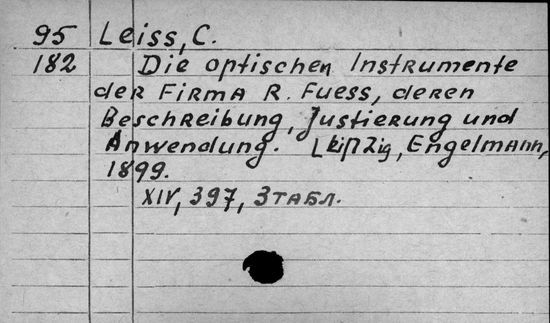 95 Leiss, C.
182 Die optischen Instrumente
der Firma R. Fuess, deren
Beschreibung, Justierung und
Anwendung. Leipzig, Engelmann,
1899.
XIV, 397, 3 табл.